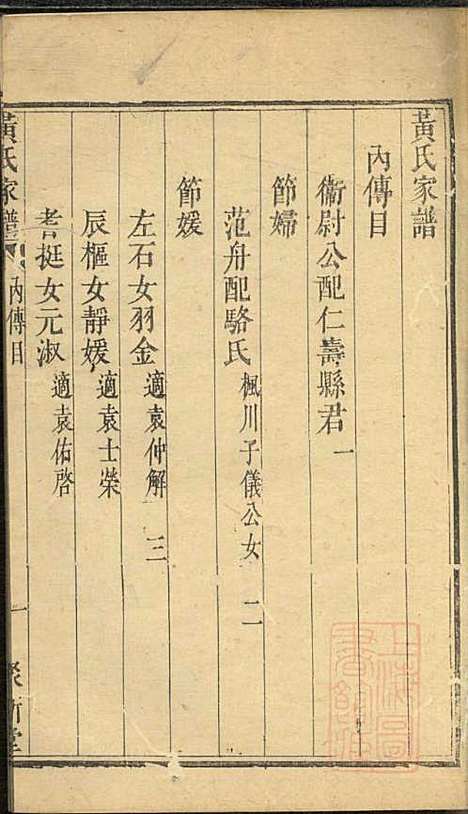 黃氏家譜
內傳目
衞尉公配仁壽縣君 一
節婦
范舟配駱氏 楓川子儀公女 二
節媛
左石女羽金 適袁仲解 三
辰樞女靜媛 適袁士榮
耆挺女元淑 適袁佑啓
黃氏家譜 內傳目 一
上海圖書館藏